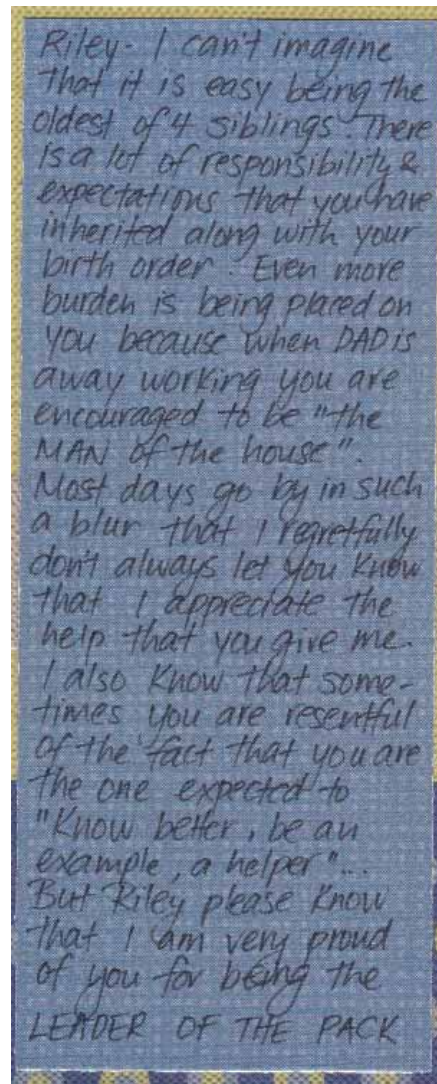 Riley- I can't imagine
that it is easy being the
oldest of 4 siblings. There
is a lot of responsibility &
expectations that you have
inherited along with your
birth order. Even more
burden is being placed on
you because when DAD is
away working you are
encouraged to be "the
MAN of the house".
Most days go by in such
a blur that I regretfully
don't always let you know
that I appreciate the
help that you give me.
I also know that some-
times you are resentful
of the fact that you are
the one expected to
"Know better, be an
example, a helper"...
But Riley please know
that I am very proud
of you for being the
LEADER OF THE PACK